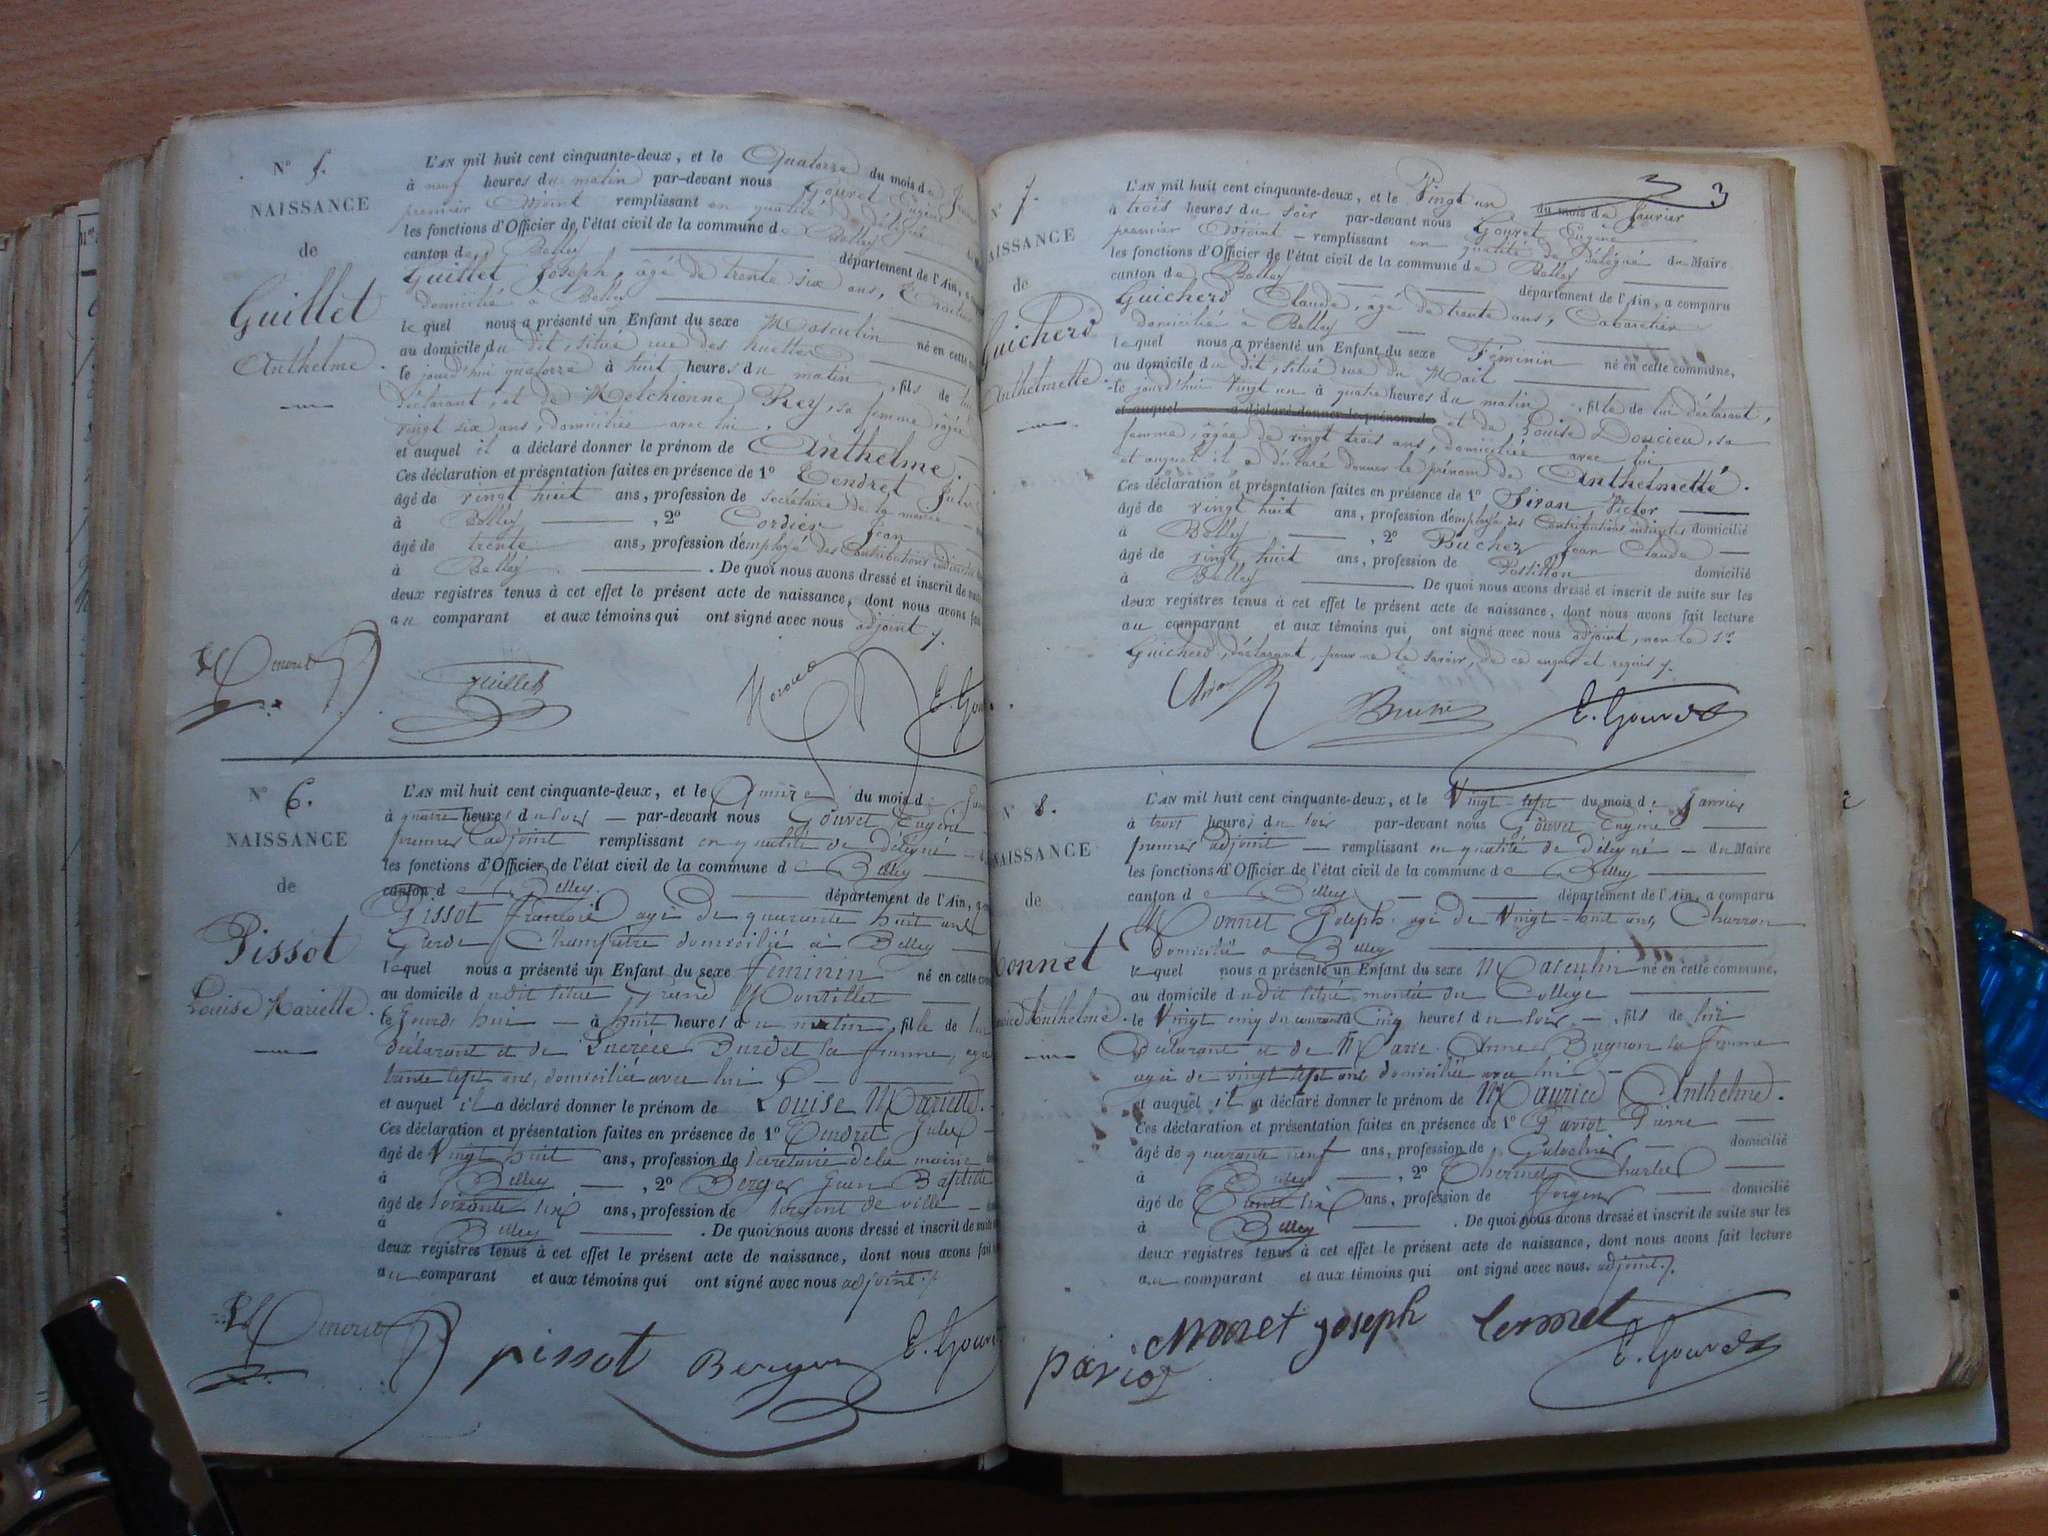 N° 5.
NAISSANCE
de
Guillet
Anthelme.
L'AN mil huit cent cinquante-deux, et le Quatorze du mois de
à neuf heures du matin par-devant nous Gouvet Eugène
premier adjoint remplissant en qualité de Délégué
les fonctions d'Officier de l'état civil de la commune de Belley
canton de Belley département de l'Ain, a
Guillet Joseph, âgé de trente six ans,
domicilié à Belley
lequel nous a présenté un Enfant du sexe Masculin né en cette
au domicile du dit, situé rue des
le jourd'hui quatorze à huit heures du matin, fils de lui
déclarant, et de Melchionne Rey, sa femme, âgée
vingt six ans, domiciliée avec lui,
et auquel il a déclaré donner le prénom de Anthelme.
Ces déclaration et présentation faites en présence de 1° Tendret Jules
âgé de vingt huit ans, profession de secrétaire de la mairie
à Belley , 2° Cordier Jean
âgé de trente ans, profession d'employé des Contributions indirectes
à Belley . De quoi nous avons dressé et inscrit de suite
deux registres tenus à cet effet le présent acte de naissance, dont nous avons fait
au comparant et aux témoins qui ont signé avec nous adjoint.
Guillet
E. Gou
N° 6.
NAISSANCE
de
Pissot
Louise Mariette.
L'AN mil huit cent cinquante-deux, et le Quinze du mois d
à quatre heures du soir par-devant nous Gouvet Eugène
premier adjoint remplissant en qualité de délégué
les fonctions d'Officier de l'état civil de la commune de Belley
canton de Belley. département de l'Ain, a
Pissot François agé de quarante huit ans
Garde Champêtre domicilié à Belley
lequel nous a présenté un Enfant du sexe féminin né en cette
au domicile dudit situé Grand
le jourd'hui à huit heures du matin, fille de lui
déclarant et de Lucrèce Burdet sa femme, agée
trente sept ans, domiciliée avec lui
et auquel il a déclaré donner le prénom de Louise Mariette.
Ces déclaration et présentation faites en présence de 1° Tendret Jules
âgé de Vingt huit ans, profession de Secrétaire de la mairie
à Belley , 2° Berger Jean Baptiste
âgé de soixante six ans, profession de sergent de ville
à Belley . De quoi nous avons dressé et inscrit de suite
deux registres tenus à cet effet le présent acte de naissance, dont nous avons fait
au comparant et aux témoins qui ont signé avec nous adjoint.
pissot Berger E. Gouv
3
N° 7.
NAISSANCE
de
Guicherd
Anthelmette.
L'AN mil huit cent cinquante-deux, et le Vingt un du mois de Janvier
à trois heures du soir par-devant nous Gouvet Eugène
premier adjoint remplissant en qualité de Délégué du Maire
les fonctions d'Officier de l'état civil de la commune de Belley
canton de Belley département de l'Ain, a comparu
Guicherd Claude, âgé de trente ans, Cabaretier
domicilié à Belley
lequel nous a présenté un Enfant du sexe Féminin né en cette commune,
au domicile du dit, situé rue du Mail
le jourd'hui Vingt un à quatre heures du matin, fille de lui déclarant,
et auquel a déclaré donner le prénom de et de Louise Doucieu, sa
femme, âgée de vingt trois ans, domiciliée avec lui
et auquel il a déclaré donner le prénom de Anthelmette.
Ces déclaration et présentation faites en présence de 1° Siran Victor
âgé de vingt huit ans, profession d'employé des Contributions indirectes domicilié
à Belley , 2° Bucher Jean Claude
âgé de vingt huit ans, profession de Postillon domicilié
à Belley De quoi nous avons dressé et inscrit de suite sur les
deux registres tenus à cet effet le présent acte de naissance, dont nous avons fait lecture
au comparant et aux témoins qui ont signé avec nous adjoint, non le Sr
Guicherd, déclarant, pour ne le savoir, de ce enquis et requis.
E. Gouvet
N° 8.
NAISSANCE
de
Monnet
Maurice Anthelme.
L'AN mil huit cent cinquante-deux, et le Vingt-sept du mois de Janvier
à trois heures du soir par-devant nous Gouvet Eugène
premier adjoint remplissant en qualité de délégué du Maire
les fonctions d'Officier de l'état civil de la commune de Belley
canton de Belley département de l'Ain, a comparu
Monnet Joseph agé de Vingt-huit ans, Charron
domicilié à Belley
lequel nous a présenté un Enfant du sexe Masculin né en cette commune,
au domicile dudit situé montée du College
le Vingt cinq du courant à Cinq heures du soir, fils de lui
déclarant et de Marie Anne Bugnon sa femme
agée de vingt sept ans domiciliée avec lui
et auquel il a déclaré donner le prénom de Maurice Anthelme.
Ces déclaration et présentation faites en présence de 1° Pariot Pierre
âgé de quarante neuf ans, profession de domicilié
à Belley , 2° Charles
âgé de Trente six ans, profession de Forgeur domicilié
à Belley . De quoi nous avons dressé et inscrit de suite sur les
deux registres tenus à cet effet le présent acte de naissance, dont nous avons fait lecture
au comparant et aux témoins qui ont signé avec nous. adjoint.
pariot Monet joseph E. Gouvet